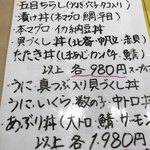 ・五目ちらし(うなぎ・ぶり・タコ入り)
・漬け丼(本マグロ・鯛・平目)
・本マグロ・イカ納豆丼
・貝づくし丼(北寄・甲貝・赤貝)
・たたき丼(しまあじ・カンパチ・鯛)
以上 各980円
・うに、真つぶ入り貝づくし丼
・うに、いくら、数の子・中トロ丼
・あぶり丼(大トロ・鯛・サーモン)
以上 各1.980円